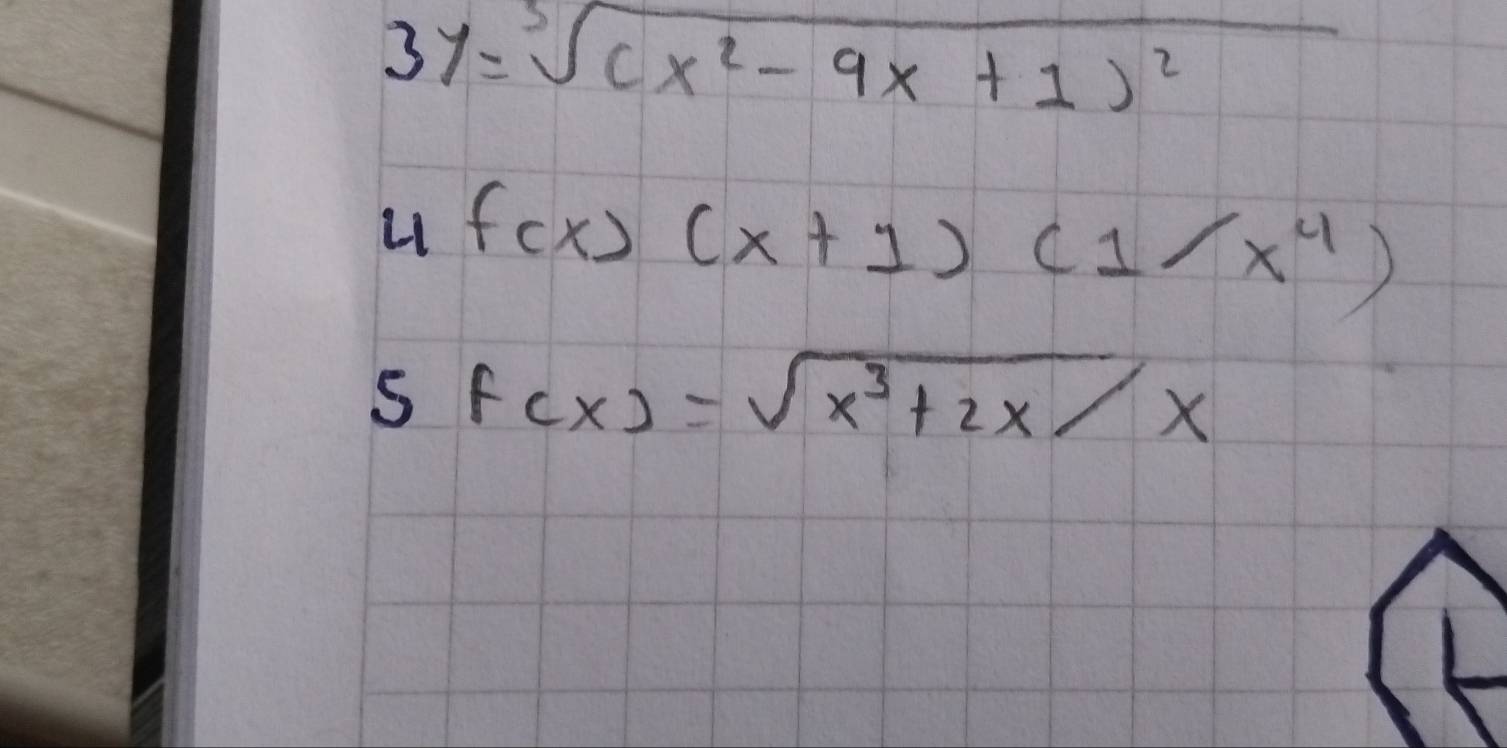 3 y = ³√(x² - 9x + 1)²
4 f(x) (x + 1) (1 / x⁴)
5 f(x) = √x³ + 2x / x